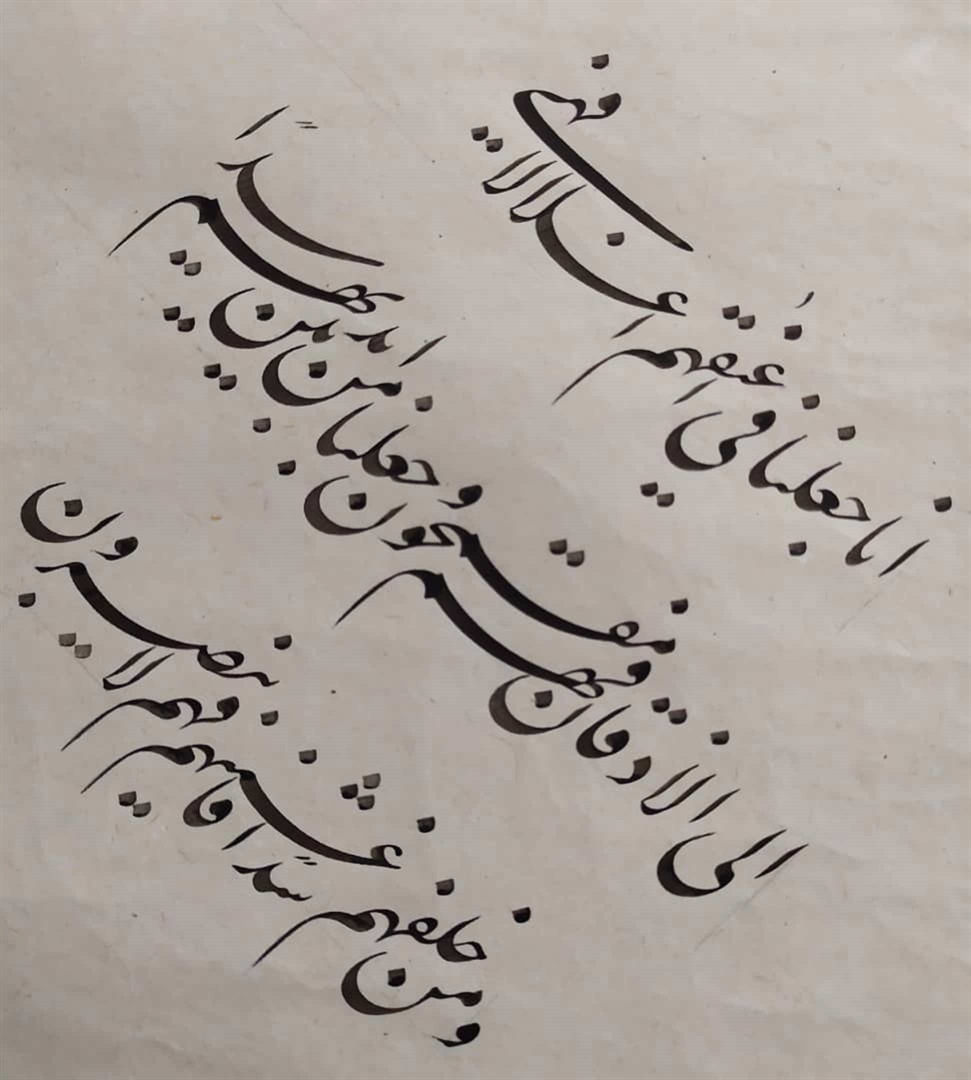 انا جعلنا في اعنقهم اغلالا فهی
الی الاذقان فهم مقمحون و جعلنا من بین ایدیهم سداً
و من خلفهم سداً فاغشینهم فهم لا یبصرون